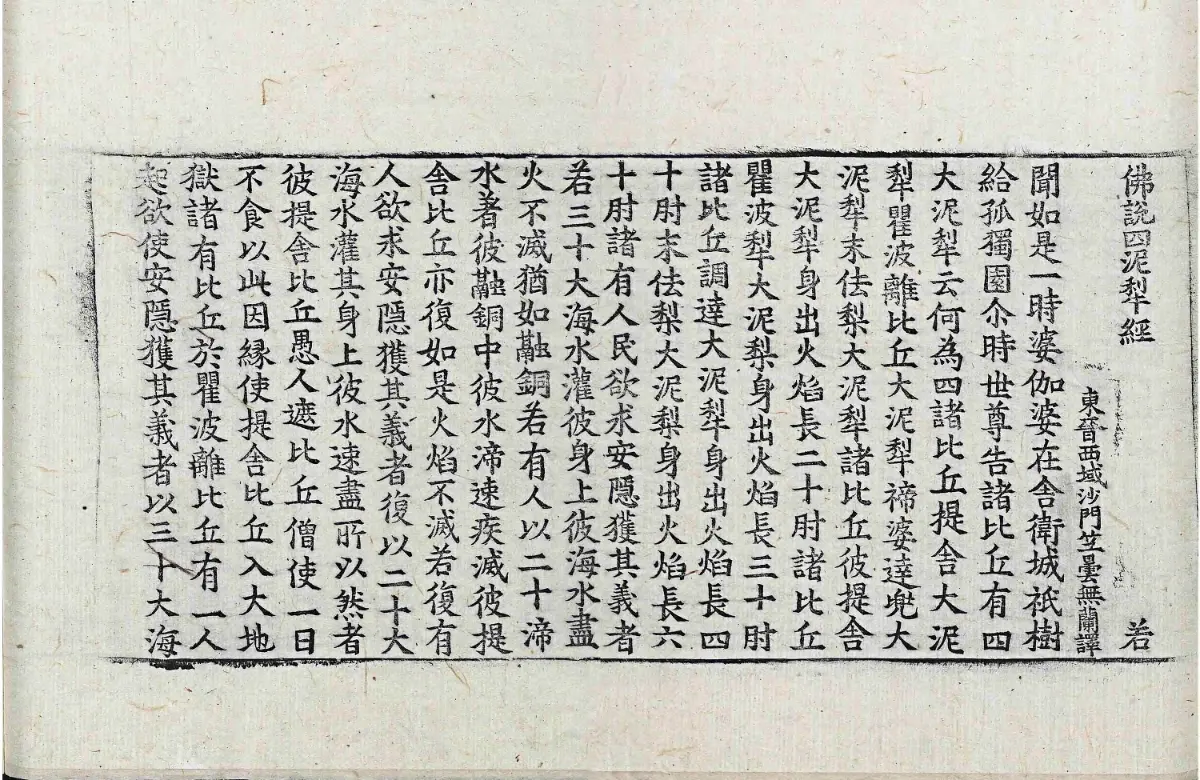 佛說四泥犁經 若
東晉西域沙門竺曇無蘭譯
聞如是一時婆伽婆在舍衛城祇樹
給孤獨園尒時世尊告諸比丘有四
大泥犁云何為四諸比丘提舍大泥
犁瞿波離比丘大泥犁禘婆達兜大
泥犁末佉梨大泥犁諸比丘彼提舍
大泥犁身出火焰長二十肘諸比丘
瞿波犁大泥梨身出火焰長三十肘
諸比丘調達大泥犁身出火焰長四
十肘末佉梨大泥梨身出火焰長六
十肘諸有人民欲求安隱獲其義者
若三十大海水灌彼身上彼海水盡
火不滅猶如融銅若有人以二十渧
水著彼融銅中彼水渧速疾滅彼提
舍比丘亦復如是火焰不滅若復有
人欲求安隱獲其義者復以二十大
海水灌其身上彼水速盡所以然者
彼提舍比丘愚人遮比丘僧使一日
不食以此因緣使提舍比丘入大地
獄諸有比丘於瞿波離比丘有一人
起欲使安隱獲其義者以三十大海